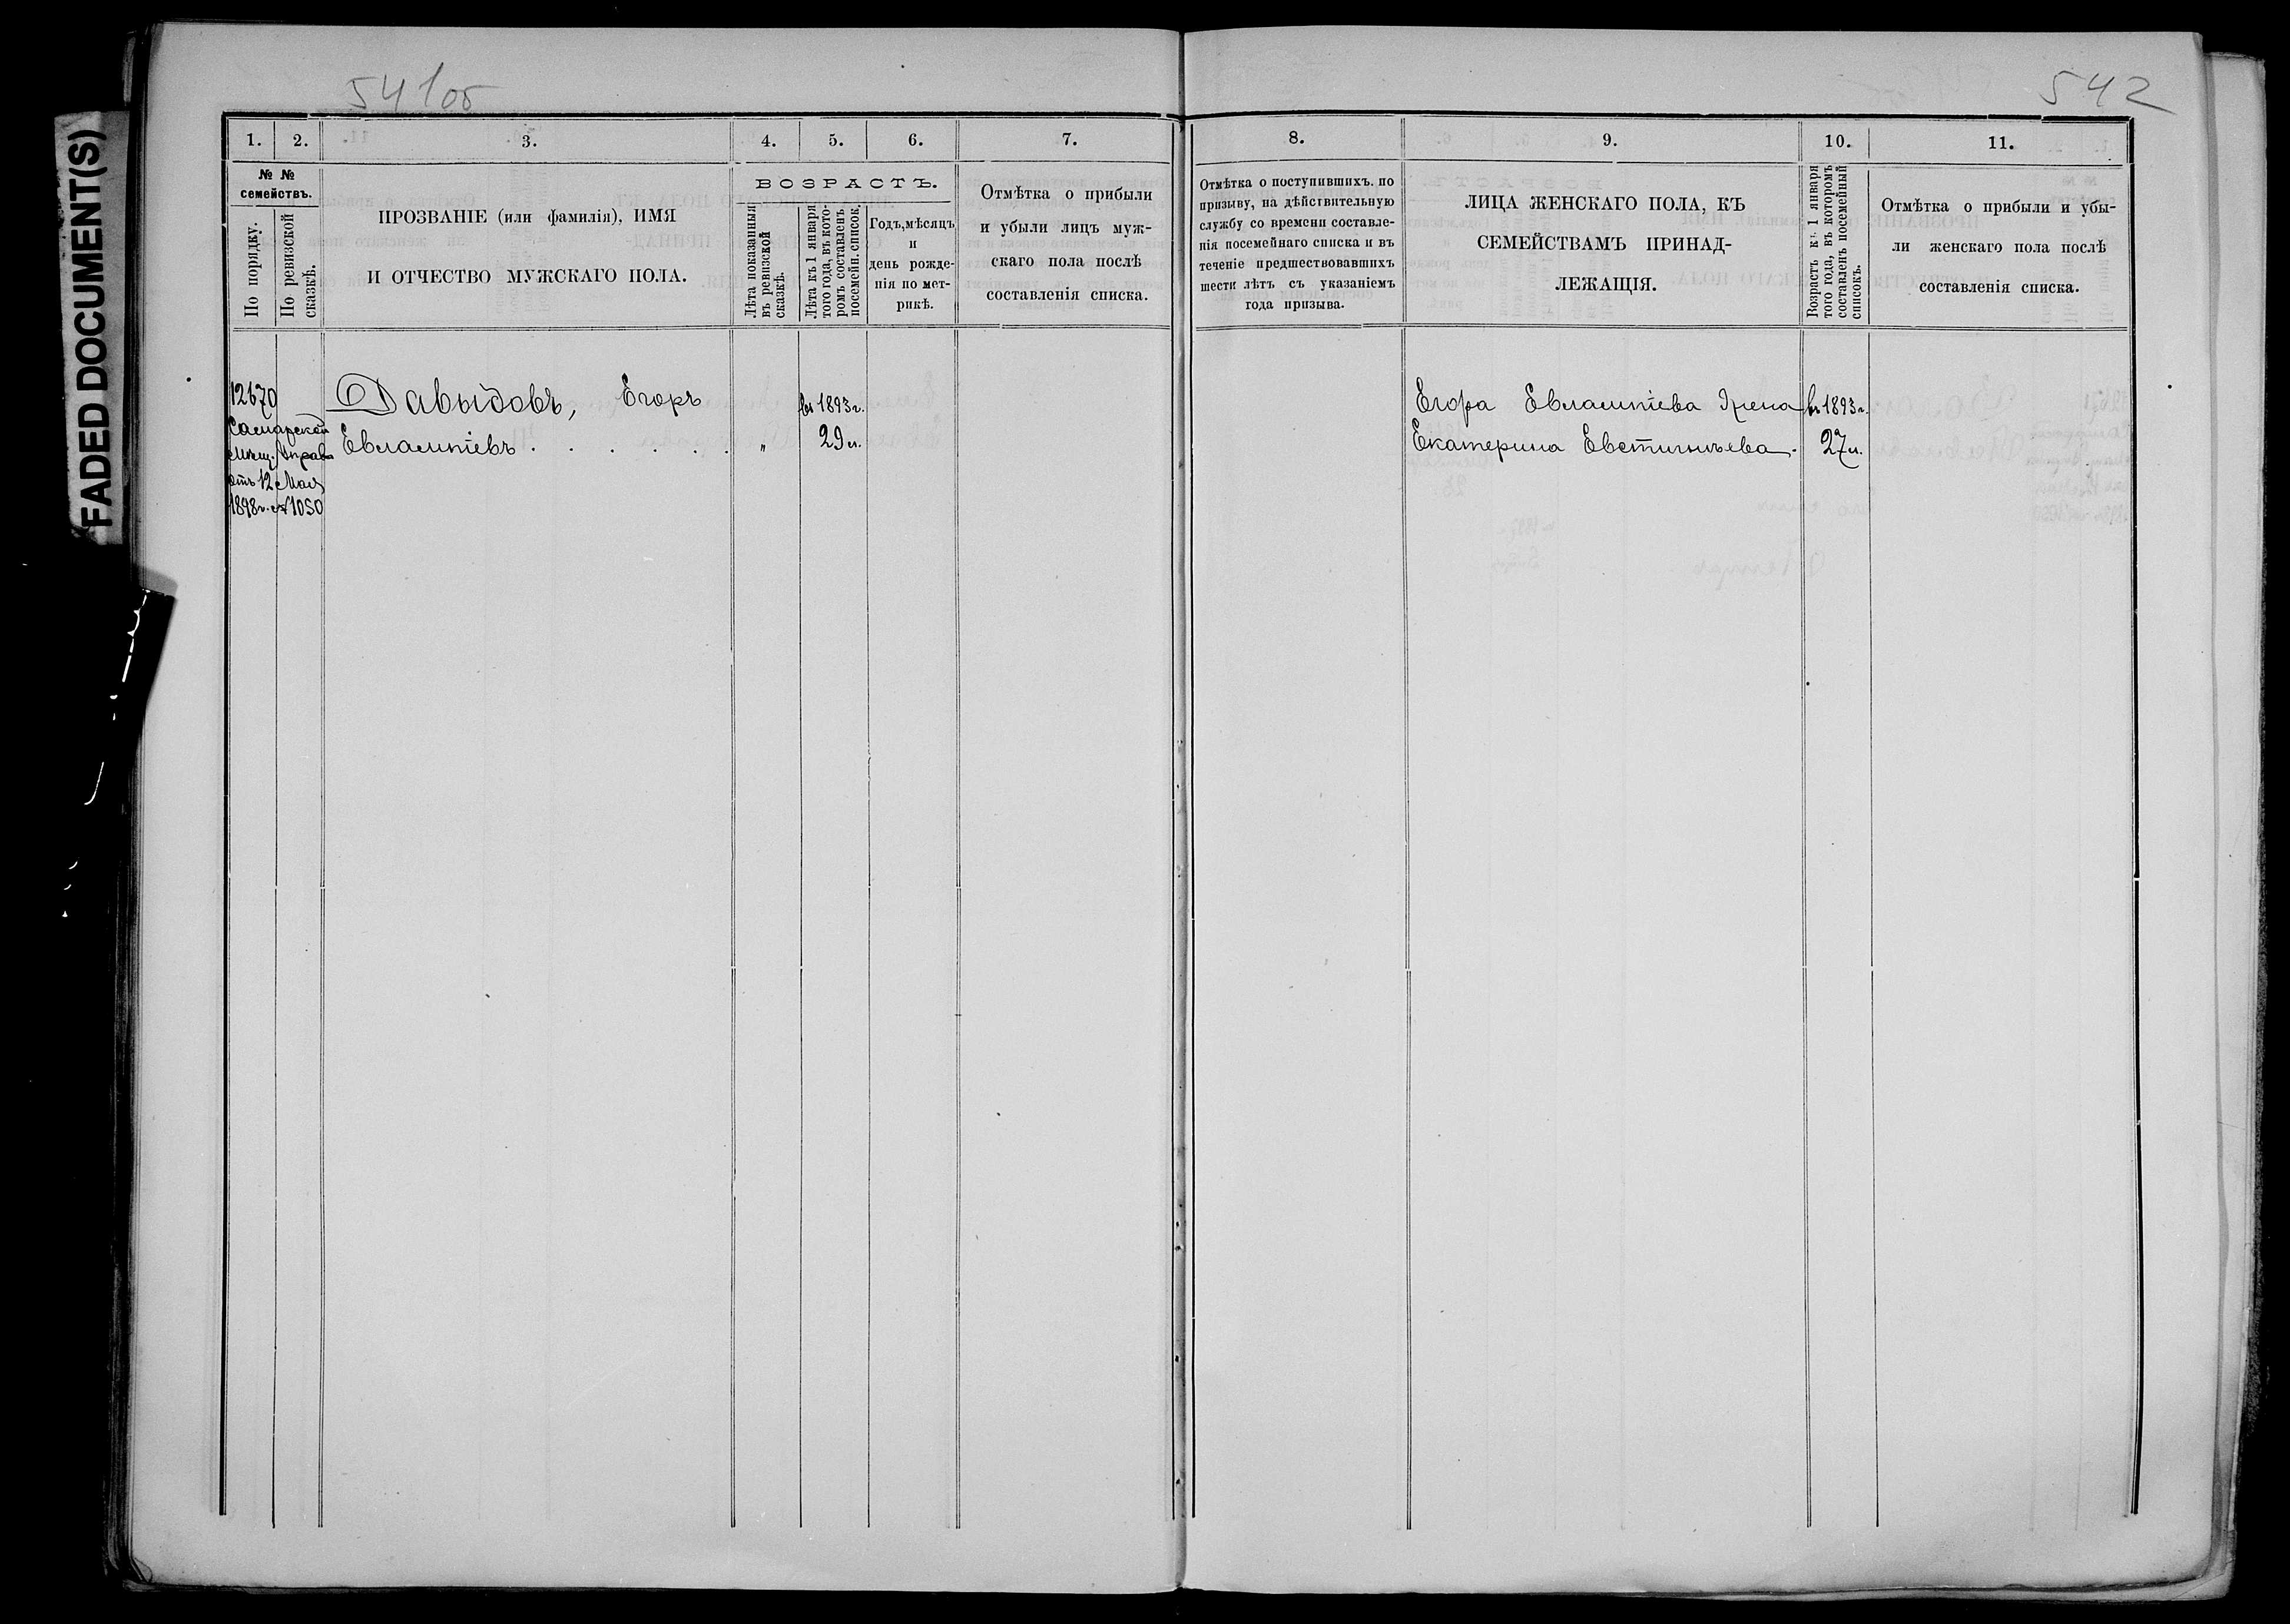 FADED DOCUMENT(S)
541об
542
1.
2.
3.
4.
5.
6.
7.
8.
9.
10.
11.
№ №
семействъ.
По порядку.
По ревизской
сказкѣ.
ПРОЗВАНІЕ (или фамилія), ИМЯ
И ОТЧЕСТВО МУЖСКАГО ПОЛА.
ВОЗРАСТЪ.
Лѣта показанныя
въ ревизской
сказкѣ.
Лѣта къ 1 января
того года, въ кото-
ромъ составленъ
посемейн. список.
Годъ, мѣсяцъ
и
день рожде-
нія по мет-
рикѣ.
Отмѣтка о прибыли
и убыли лицъ муж-
скаго пола послѣ
составленія списка.
Отмѣтка о поступившихъ. по
призыву, на дѣйствительную
службу со времени составле-
нія посемейнаго списка и въ
теченіе предшествовавшихъ
шести лѣтъ съ указаніемъ
года призыва.
ЛИЦА ЖЕНСКАГО ПОЛА, КЪ
СЕМЕЙСТВАМЪ ПРИНАД-
ЛЕЖАЩІЯ.
Возрастъ къ 1 января
того года, въ которомъ
составленъ посемейный
списокъ.
Отмѣтка о прибыли и убы-
ли женскаго пола послѣ
составленія списка.
12670
Самарской
Мѣщ. Управы
отъ 12 Мая
1898г. № 1050
Давыдовъ, Егоръ
Евлампіевъ . . . . . . .
„
въ 1893г.
29л.
Егора Евлампіева жена
Екатерина Евстигнѣева.
въ 1893г.
27л.